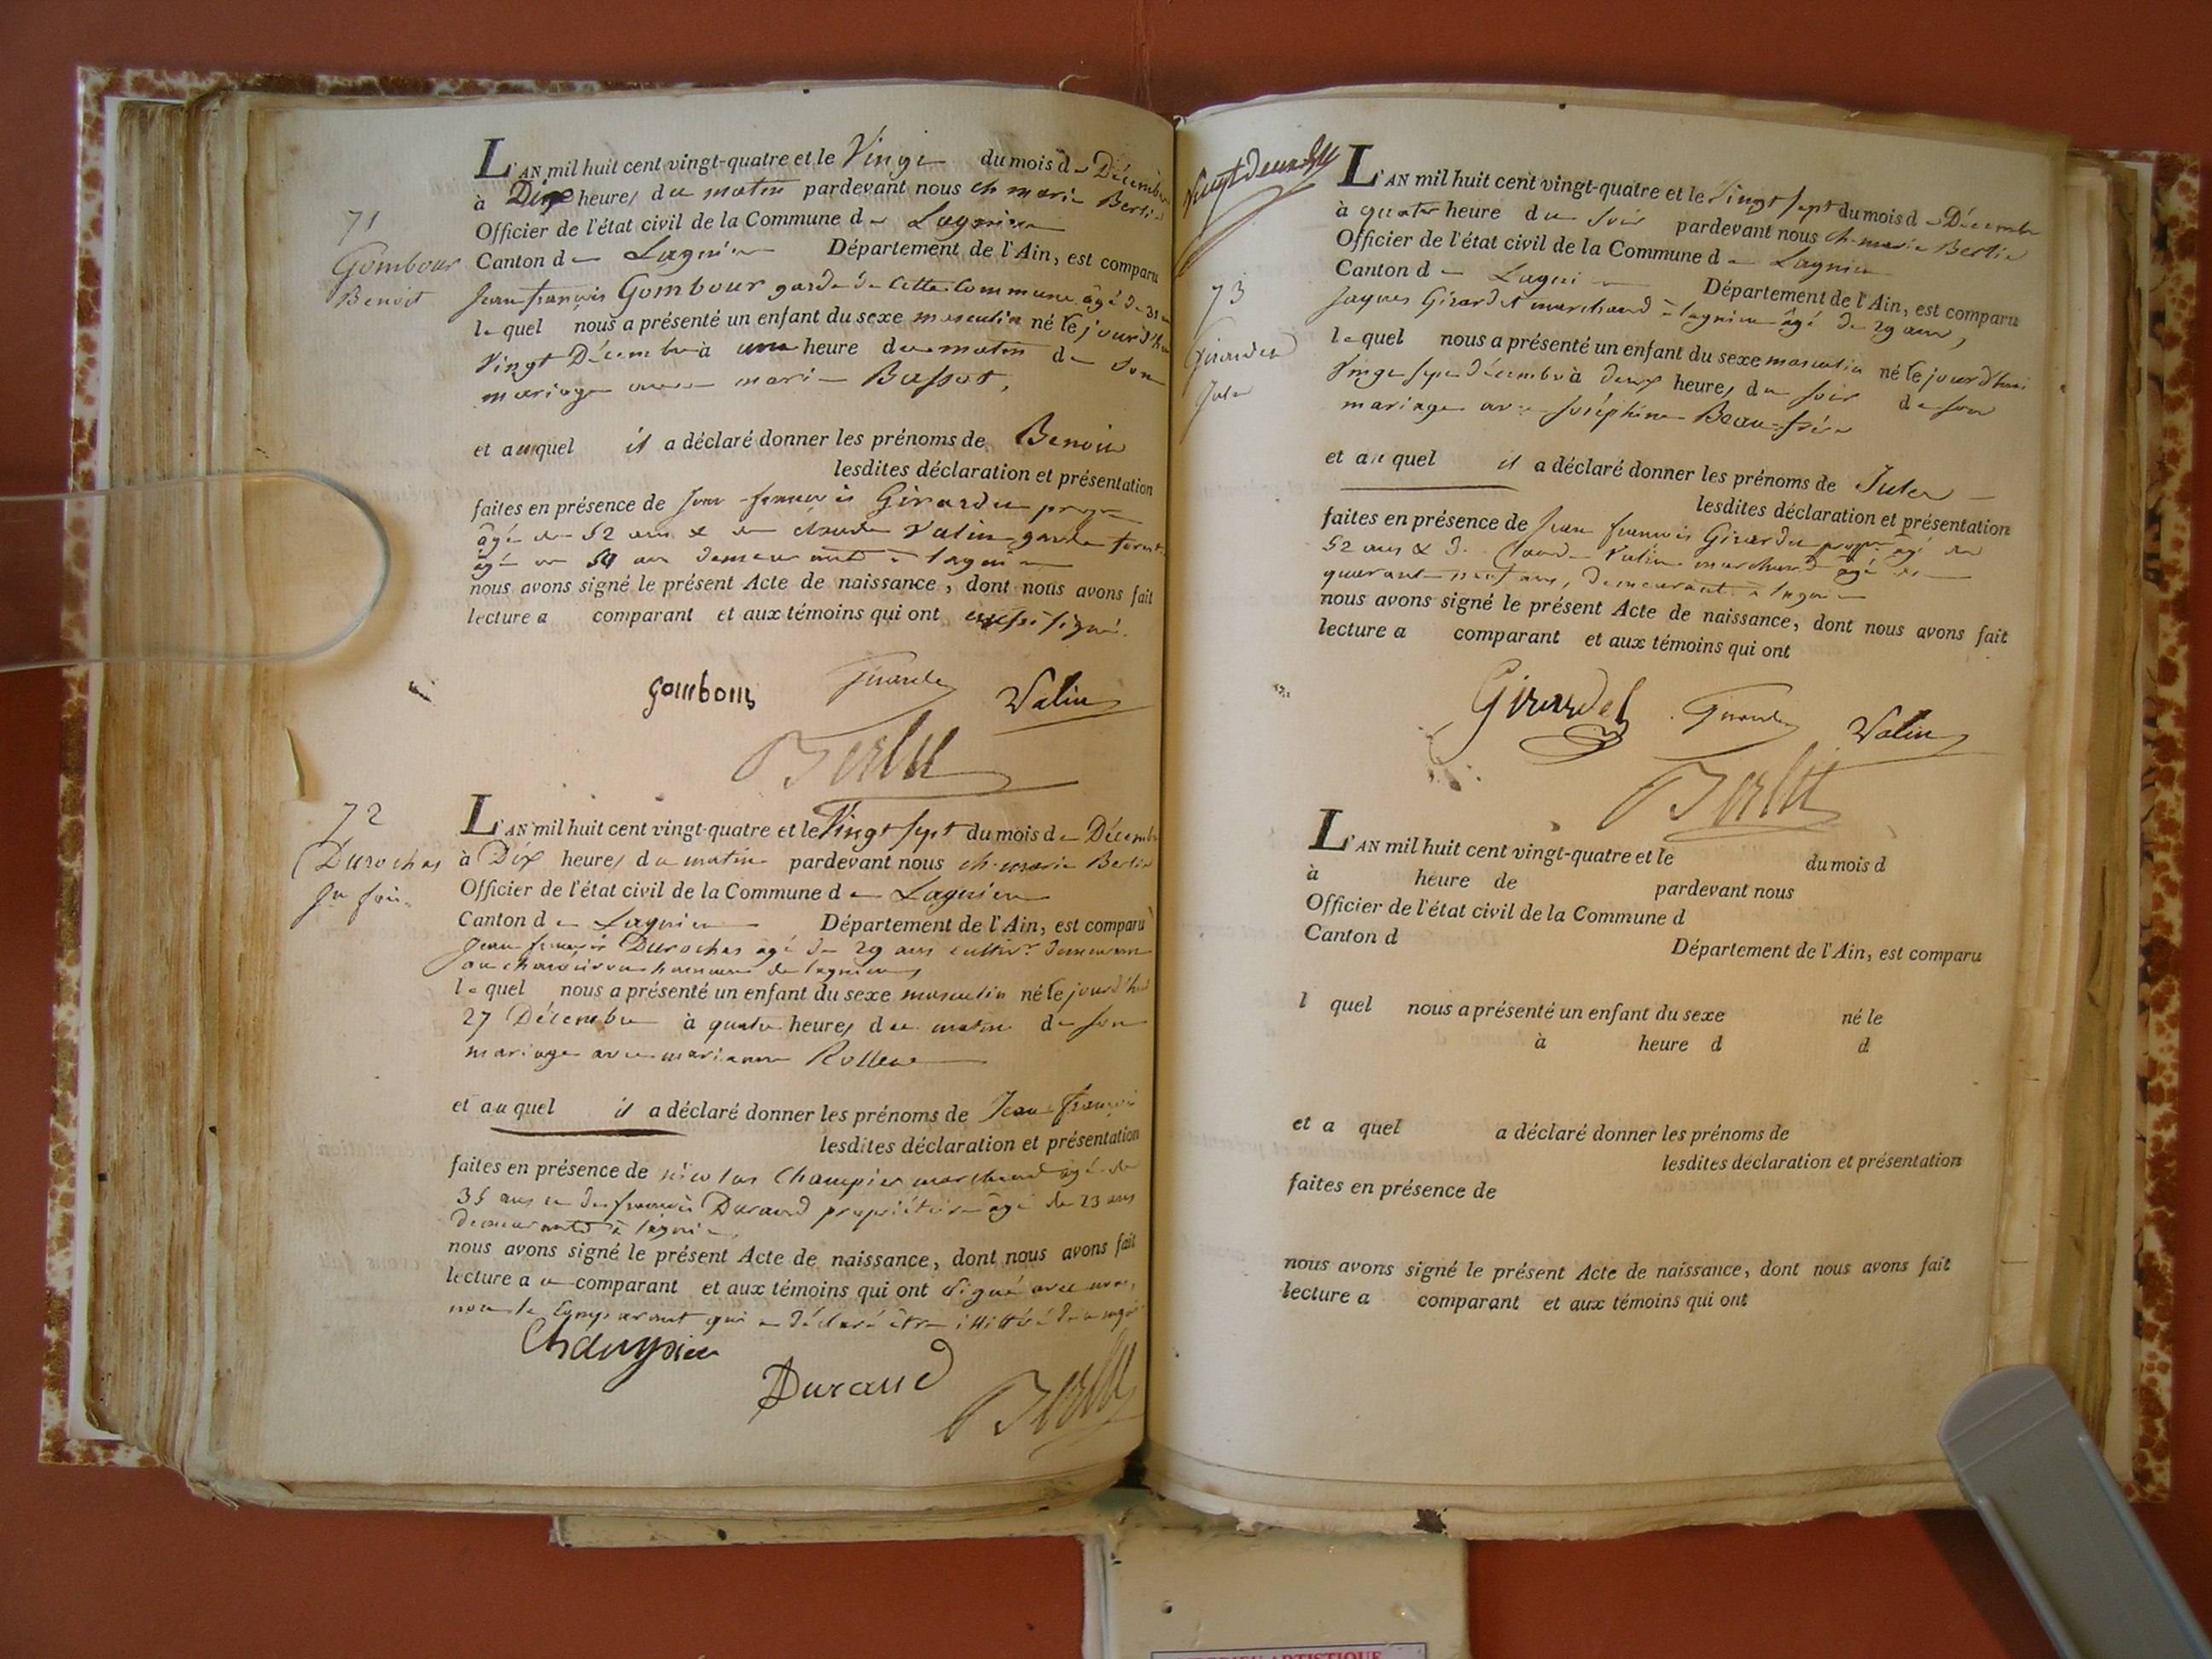 71
Gombour
Benoit
L'AN mil huit cent vingt-quatre et le Vingt du mois de Décembre
à Dix heures du matin pardevant nous ch marie Berlie
Officier de l'état civil de la Commune de Lagnieu
Canton de Lagnieu Département de l'Ain, est comparu
Jean françois Gombour garde de cette Commune âgé de 31
lequel nous a présenté un enfant du sexe masculin né le jourd'hui
Vingt Décembre à une heure du matin de son
mariage avec marie Bassot,
et auquel il a déclaré donner les prénoms de Benoit
lesdites déclaration et présentation
faites en présence de Jean françois Girardet propre
âgé de 52 ans & de claude Valin garde forest
âgé de ans demeurant à lagnieu
nous avons signé le présent Acte de naissance, dont nous avons fait
lecture a comparant et aux témoins qui ont aussi signé.
Gombour Girardet Valin
Berlie
72
Durochas
Jn fois
L'AN mil huit cent vingt-quatre et le Vingt sept du mois de Décembre
à Dix heures du matin pardevant nous ch. marie Berlie
Officier de l'état civil de la Commune de Lagnieu
Canton de Lagnieu Département de l'Ain, est comparu
Jean françois Durochas âgé de 29 ans cultivr demeurant
au hameau de lagnieu
lequel nous a présenté un enfant du sexe masculin né le jourd'hui
27 Décembre à quatre heures du matin de son
mariage avec marianne Rollet
et auquel il a déclaré donner les prénoms de Jean françois
lesdites déclaration et présentation
faites en présence de nicolas Champier marchand âgé de
35 ans et de françois Durand propriétaire âgé de 23 ans
demeurants à lagnieu
nous avons signé le présent Acte de naissance, dont nous avons fait
lecture a u comparant et aux témoins qui ont signé avec nous,
non le Comparant qui a déclaré être illittéré
Champier
Durand
Berlie
Vingt deux
73
Girardet
Jules
L'AN mil huit cent vingt-quatre et le Vingt sept du mois de Décembre
à quatre heure du soir pardevant nous ch. marie Berlie
Officier de l'état civil de la Commune de Lagnieu
Canton de Lagnieu Département de l'Ain, est comparu
Jaques Girardet marchand à lagnieu âgé de 29 ans,
lequel nous a présenté un enfant du sexe masculin né le jourd'hui
Vingt sept décembre à deux heures du soir de son
mariage avec Joséphine Beau-frère
et auquel il a déclaré donner les prénoms de Jules
lesdites déclaration et présentation
faites en présence de Jean françois Girardet propre âgé de
52 ans & d. Claude Valin marchand âgé de
quarante neuf ans, demeurant à lagnieu
nous avons signé le présent Acte de naissance, dont nous avons fait
lecture a comparant et aux témoins qui ont
Girardet Girardet Valin
Berlie
L'AN mil huit cent vingt-quatre et le du mois d
à heure de pardevant nous
Officier de l'état civil de la Commune d
Canton d Département de l'Ain, est comparu
l quel nous a présenté un enfant du sexe né le
à heure d d
et a quel a déclaré donner les prénoms de
lesdites déclaration et présentation
faites en présence de
nous avons signé le présent Acte de naissance, dont nous avons fait
lecture a comparant et aux témoins qui ont